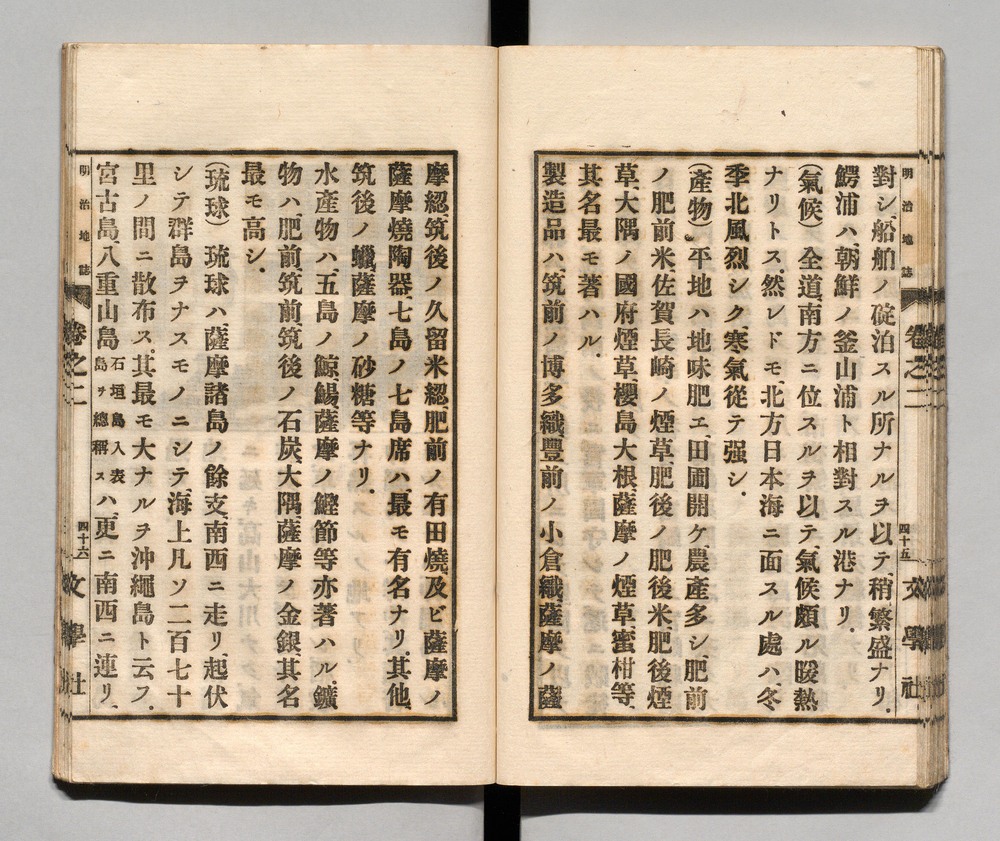 明治地誌 卷之二 四十五 文學社
對シ、船舶ノ碇泊スル所ナルヲ以テ、稍繁盛ナリ.
鰐浦ハ、朝鮮ノ釜山浦ト相對スル港ナリ.
(氣候) 全道、南方ニ位スルヲ以テ、氣候頗ル暖熱
ナリトス.然レドモ、北方日本海ニ面スル處ハ、冬
季北風烈シク、寒氣從テ强シ.
(產物) 平地ハ地味肥エ、田圃開ケ、農產多シ、肥前
ノ肥前米、佐賀長崎ノ煙草、肥後ノ肥後米、肥後煙
草、大隅ノ國府煙草、櫻島大根、薩摩ノ煙草蜜柑等、
其名最モ著ハル.
製造品ハ、筑前ノ博多織、豐前ノ小倉織、薩摩ノ薩
摩綛、筑後ノ久留米綛、肥前ノ有田燒、及ビ薩摩ノ
薩摩燒陶器、七島ノ七島席ハ、最モ有名ナリ.其他
筑後ノ蠟、薩摩ノ砂糖等ナリ.
水產物ハ、五島ノ鯨鯣、薩摩ノ鰹節等亦著ハル.鑛
物ハ、肥前、筑前、筑後ノ石炭、大隅、薩摩ノ金銀、其名
最モ高シ.
(琉球) 琉球ハ、薩摩諸島ノ餘支、南西ニ走リ、起伏
シテ群島ヲナスモノニシテ、海上凡ソ二百七十
里ノ間ニ散布ス.其最モ大ナルヲ沖繩島ト云フ.
宮古島、八重山島 石垣島入表島ヲ總稱ス ハ、更ニ南西ニ連リ.
明治地誌 卷之二 四十六 文學社